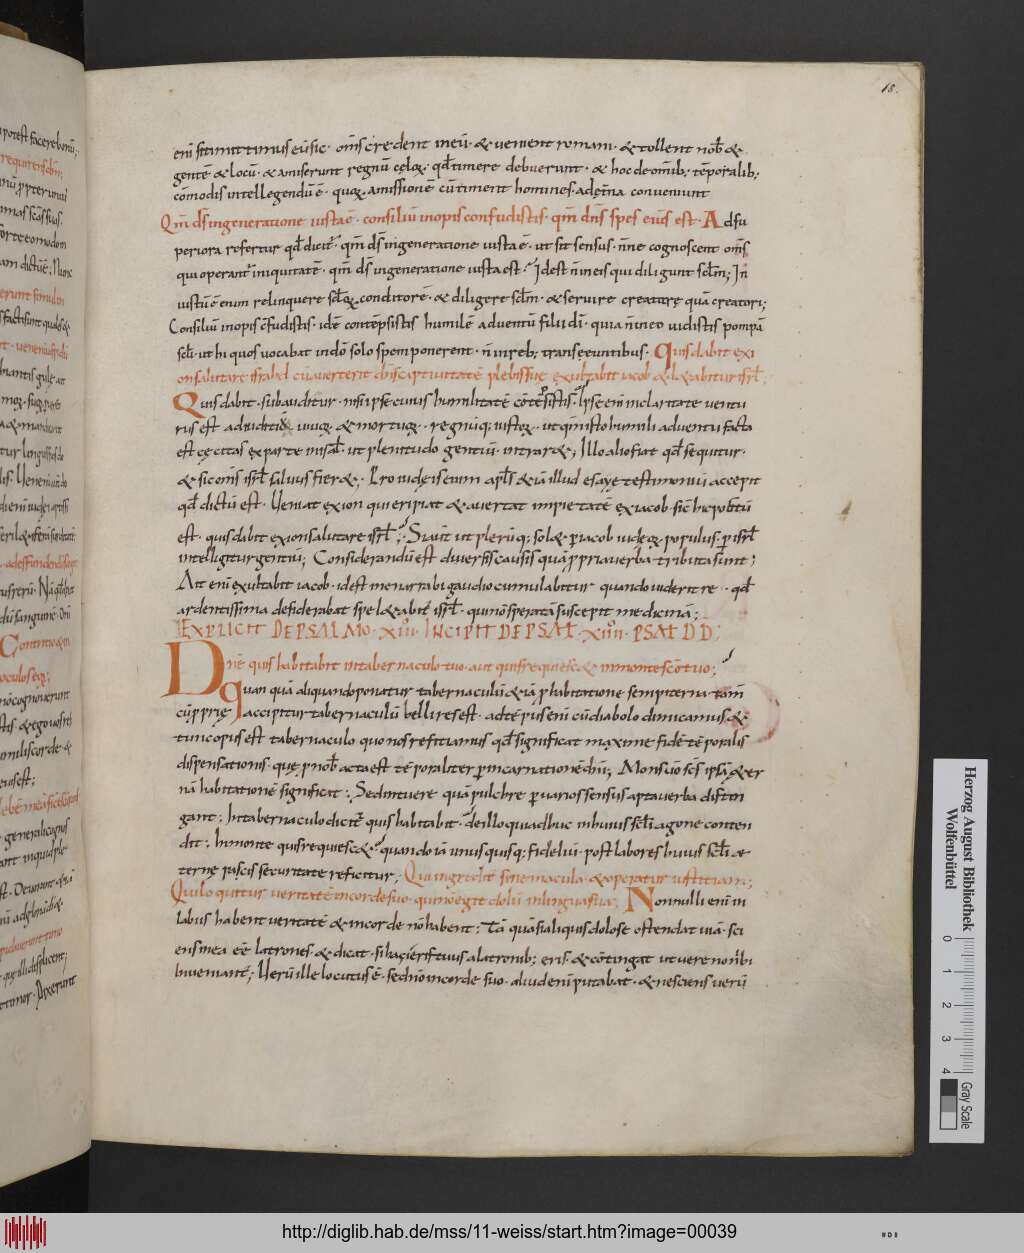 18.
enī si dimittimus eū sic · om̄s credent ineū · & venient romani · & tollent nob̄ &
gentē & locū · & amiserunt regnū cęloꝝ · qd̄ timere debuerunt · & hoc de om̄ib; tēporalib;
cōmodis intellegendū ē · quoꝝ amissionē cū timent homines · adęt̄na conueniunt
Qm̄ ds̄ ingeneratione iusta ē · consiliū inopis confudistis · qm̄ dn̄s spes eius est · Ad su
periora refertur qd̄ dicit̄ · qm̄ ds̄ ingeneratione iusta ē · ut sit sensus · n̄ne cognoscent om̄s
qui operant̄ iniquitatē · qm̄ ds̄ ingeneratione iusta est · Id est n̄ in eis qui diligunt sc̄lm; In
iustū ē enim relinquere sc̄loꝝ conditorē · & diligere sc̄lm · & seruire creaturę quā creatori;
Consiliū inopis c̄fudistis · idē contēpsistis humilē aduentū filii dī · quia n̄ in eo uidistis pompā
sc̄li · ut hi quos uocabat in dō solo spem ponerent · n̄ in reb; transeuntibus · Quis dabit exi
on salutare isrāhel cū auerterit dn̄s captiuitatē plebis suę exultabit iacob & lętabitur isrl̄;
Quis dabit · subauditur · nisi ipse cuius humilitatē cōtēpsistis · Ipse enī in claritate uentu
rus est ad iudiciū uiuoꝝ & mortuoꝝ · regnūq; iustoꝝ · ut qm̄ isto humili aduentu facta
est cęcitas ex parte in isrl̄ · ut plenitudo gentiū · intrar&; Illo alio fiat qd̄ sequitur ·
& sic om̄s isrl̄ saluus fier&; Pro iudęis enim apl̄s & iā illud esayę testimoniū accepit
qd̄ dictū est · Ueniat ex ion qui eripiat & auertat impietatē ex iacob · sic hic positū
est · quis dabit ex ion salutare isrl̄ · Si aūt ut plerūq; sol& p iacob iudeoꝝ populus · p isrl̄
intelligitur gentiū; Considerandū est diuersis causis quā ppria uerba tributa sint;
Ait enī exultabit iacob · id est inenarrabi gaudio cumulabitur quando uiderit re · qd̄
ardentissima desiderabat spe l&abit̄ isrl̄ · qui nō speratā suscepit medicinā;
EXPLICIT DE PSALMO · XIII · INCIPIT DE PSAL · XIIII · PSAL D D;
Dn̄e quis habitabit in tabernaculo tuo · aut quis requiesc& in monte sc̄o tuo;
Quan quā aliquando ponatur tabernaculū & iā p habitatione sempiterna · tam̄
cū pprię accipitur tabernaculū belli res est · adtē pus enī cū diabolo dimicamus &
tunc opus est tabernaculo quo nos reficiamus qd̄ significat maxime fidē tē poralis
dispensationis · quę p nob̄ acta est tē poraliter p incarnationē dn̄i; Mons ūo sc̄s ipsā & er
nā habitationē significat · Sed intuere quā pulchre p uarios sensus apta uerba distin
gunt · In tabernaculo dicit̄ quis habitabit · de illo qui adhuc in huius sc̄li agone conten
dit · In monte quis requiesc& · quando iā unus quisq; fidelιū · post labores huius sc̄li ae
ternę pacis securitate reficitur; Qui ingredit̄ sine macula · & operatur iustitiam;
Qui loquitur ueritatē in corde suo · qui nō egit dolū in lingua sua; Nonnulli enī in
labiis habent ueritatē & in corde nō habent; Tā quā si aliquis dolose ostendat uiā · sci
ens in ea eē latrones · & dicat · si hac ieris tuus a latronib; eris · & cōtingat ut uere non ibi
inueniant̄; Uerū ille locutus ē · sed nō in corde suo · aliud enī putabat · & nesciens uerū
Herzog August Bibliothek
Wolfenbüttel
0 1 2 3 4
Gray Scale
http://diglib.hab.de/mss/11-weiss/start.htm?image=00039